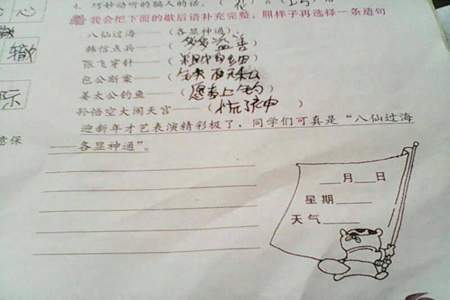 4. 巧妙动听的骗人的话。
我会把下面的歇后语补充完整,照样子再选择一条造句
心
八仙过海——(各显神通)
辙
韩信点兵——(多多益善)
张飞穿针——(粗中有细)
包公断案——(铁面无私)
际
姜太公钓鱼——(愿者上钩)
孙悟空大闹天宫——(慌了神)
迎新年才艺表演精彩极了,同学们可真是“八仙过海
——各显神通”。
意保
月 日
星期
天气